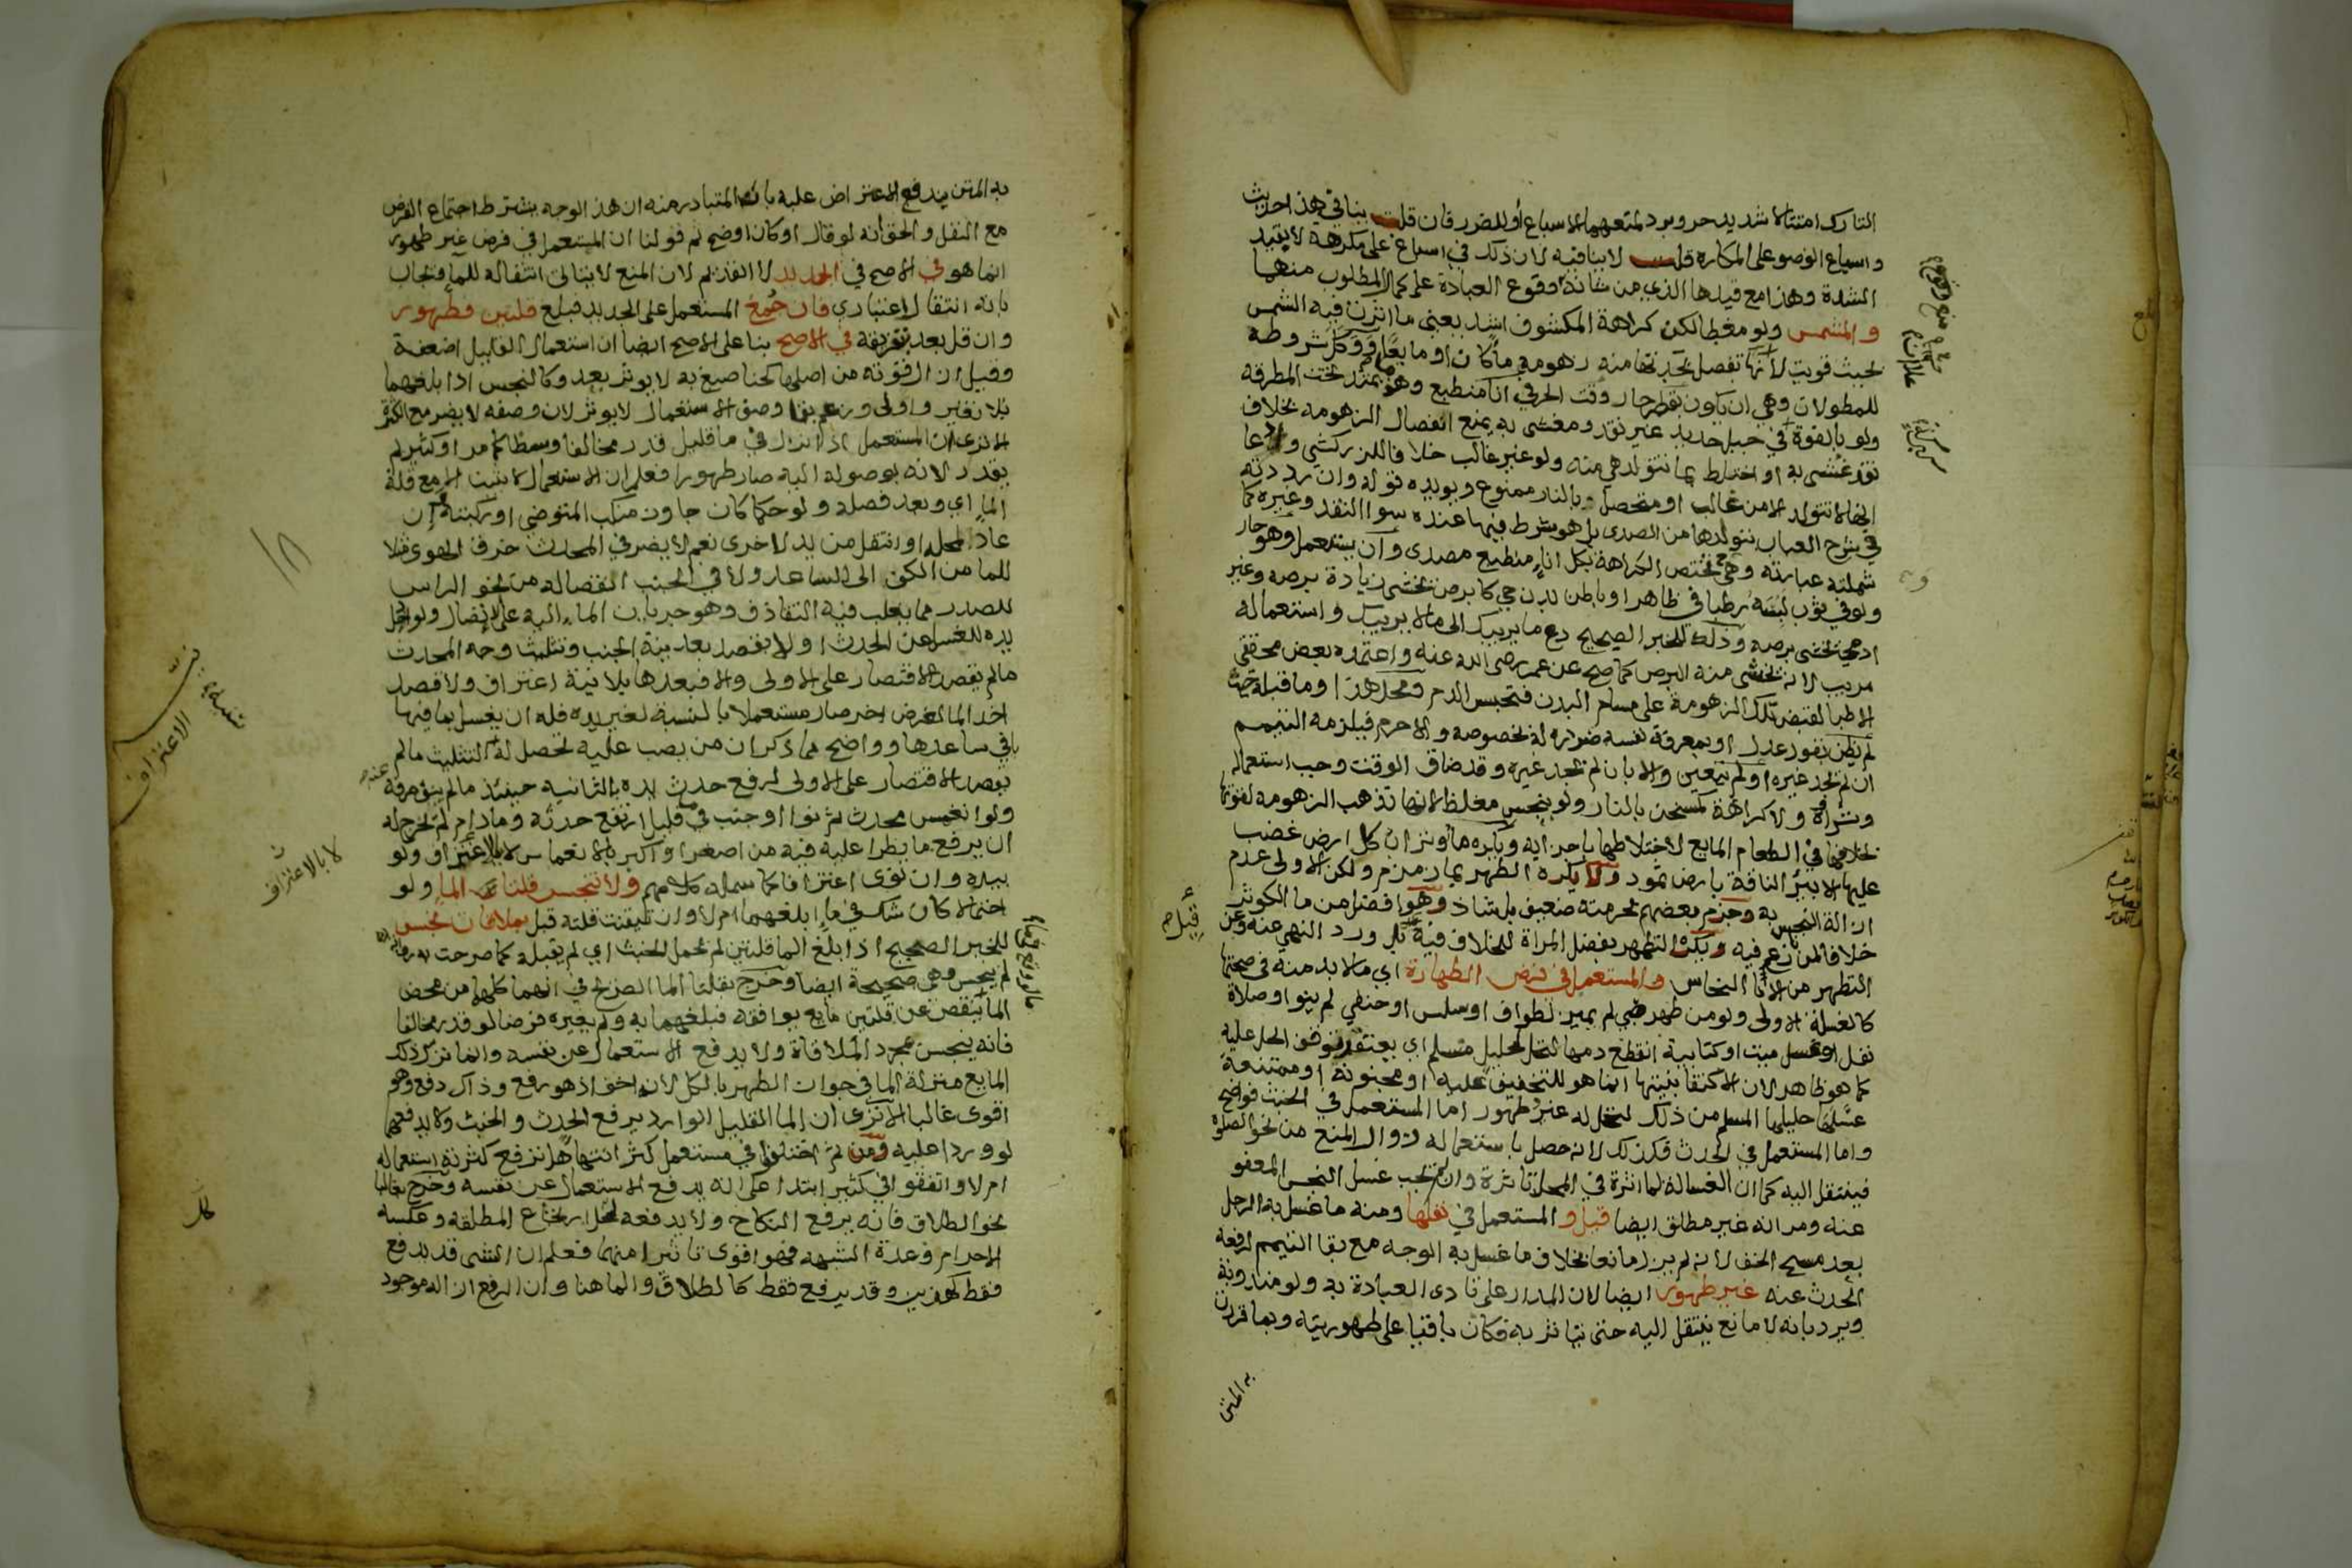 التارك امتثالا شديد حر وبرد لمنعهما الاسباغ أو للضرر فان قلت ينافي هذا حديث
واسباغ الوضو على المكاره قلت لا ينافيه لان ذلك في اسباغ على مكرهة لا بقيد
الشدة وهذا مع قيدها الذي من شانه وقوع العبادة على كمال المطلوب منها
و المشمس ولو مغطا لكن كراهة المكشوف اشد يعني ما اثرت فيه الشمس
بحيث قويت لأنها تفصل بحدتها منه زهومة ما كان او مايعا
للمطولات وهي ان يكون بقطر حار وقت الحر في انا منطبع وهو يمتد تحت المطرقة
ولو بالقوة في حديد غير نقد ومغشى به يمنع انفصال الزهومة بخلاف
نقد غشي به او اختلط بما تتولد هي منه ولو غير غالب خلافا للزركشي وادعا
انها لا تتولد الا من غالب او متحصل بالنار ممنوع ويويده قوله وان رددته
في شرح العباب بتولدها من الصدى بل هو شرط فيها عنده سوا النقد وغيره كما
شملته عبارته وهي تختص الكراهة بكل انا منطبع مصدى وان يستعمل وهو حار
ولو في ثوب لبسه رطبا في ظاهر او باطن بدن حي كابرص تخشى زيادة برصه وغير
ادمي يخشى برصه وذلك للخبر الصحيح دع ما يريبك الى ما لا يريبك واستعماله
مريب لانه يخشى منه البرص كما صح عن عمر رضى الله عنه واعتمده بعض محققي
الاطبا لقبض تلك الزهومة على مسام البدن فتحبس الدم ومحل هذا وما قبله حيث
لم يظن بقول عدل او بمعرفة نفسه ضرره له بخصوصه والا حرم فيلزمه التيمم
ان لم يجد غيره او لم يتعين والا بان لم يجد غيره وقد ضاق الوقت وجب استعماله
وشراه ولا كراهة لمسخن بالنار ولو بنجس مغلظ لانها تذهب الزهومة لقوتها
بخلافها في الطعام المايع لاختلاطها باجزايه ويكره ما وتراب كل ارض غضب
عليها الا بير الناقة بارض ثمود ولا يكره الطهر بما زمزم ولكن الاولى عدم
ازالة النجس به وجزم بعضهم بحرمته ضعيف بل شاذ وهو افضل من ما الكوثر
خلافا لمن نازع فيه ويكره التطهر بفضل المراة للخلاف فيه بل ورد النهي عنه وعن
التطهر من الانا النحاس والمستعمل في فرض الطهارة اي ما لا بد منه في صحتها
كالغسلة الاولى ولو من طهر صبي لم يميز لطواف او سلس او حنفي لم ينو او صلاة
نفل او غسل ميت او كتابية انقطع دمها لتحل لحليل مسلم اي يعتقد توقف الحل عليه
كما هو ظاهر لان الاكتفا بنيتها انما هو للتخفيف عليه او مجنونة او ممتنعة
غسلها حليلها المسلم من ذلك لتحل له غير طهور اما المستعمل في الخبث فواضح
واما المستعمل في الحدث فكذلك لانه حصل باستعماله زوال المنع من نحو الصلوة
فينتقل اليه كما ان الغسالة لما اثرت في المحل تاثرت وان لم يجب غسل النجس المعفو
عنه ومر انه غير مطلق ايضا قيل و المستعمل في نفلها ومنه ما غسل به الرجل
بعد مسح الخف لانه لم يزل مانعا بخلاف ما غسل به الوجه مع بقا التيمم لرفعه
الحدث عنه غير طهور ايضا لان المدار على تادي العبادة به ولو مندوبة
ويرد بانه لا مانع ينتقل اليه حتى يتاثر به فكان باقيا على طهوريته وبما قررت
به المتن
به المتن يندفع الاعتراض عليه بانه المتبادر منه ان هذا الوجه يشترط اجتماع الفرض
مع النفل والحق أنه لو قال او كان اوضح ثم قولنا ان المستعمل في فرض غير طهور
انما هو في الاصح في الجديد لا القديم لان المنع لا يتاتى انتقاله للما ويجاب
بانه انتقال اعتباري فان جمع المستعمل على الجديد فبلغ قلتين فطهور
وان قل بعد بتفريقه في الاصح بنا على الاصح ايضا ان استعمال القليل اضعفه
وقيل ان الرقوته من اصلها كحنا صبغ به لا يوثر بعد وكالنجس اذا بلغهما
بلا تغير واولى وزعم بقا وصف الاستعمال لا يوثر لان وصفه لا يضر مع الكثرة
الا ترى ان المستعمل اذا نزل في ما قليل قدر مخالفا وسطا كما مر او كثير لم
يقدر لانه بوصوله اليه صار طهورا فعلم ان الاستعمال لا يثبت الا مع قلة
الما اي وبعد فصله ولو حكما كان جاوز منكب المتوضي او ركبته وان
عاد لمحله او انتقل من يد لاخرى نعم لا يضر في المحدث خرق الهوى مثلا
للما من الكف الى الساعد ولا في الجنب انفصاله من نحو الراس
للصدر مما يغلب فيه التقاذف وهو جريان الما اليه على الاتصال ولو ادخل
يده للغسل عن الحدث او لا بقصد بعد نية الجنب وتثليث وجه المحدث
ما لم يقصد الاقتصار على الاولى والا فبعدها بلا نية اغتراف ولا قصد
اخذ الما لغرض اخر صار مستعملا بالنسبة لغير يده فله ان يغسل بما فيها
باقي ساعدها وواضح مما ذكر ان من يصب عليه تحصل له التثليث ما لم
يقصد الاقتصار على الاولى لرفع حدث يده بالثانية حينئذ ما لم ينو صرفه
ولو انغمس محدث ثم نوا او جنب في قليل ارتفع حدثه وما دام لم يخرج له
ان يرفع ما يطرا عليه فيه من اصغر او اكبر بالانغماس لا بالاغتراف ولو
بيده وان نوى اغترافا كما شمله كلامهم ولا تنجس قلتا الما ولو
احتمالا كان شك في ما ابلغهما ام لا وان تيقنت قلته قبل بملاقات نجس
للخبر الصحيح اذا بلغ الما قلتين لم يحمل الخبث اي لم يقبله كما صرحت به رواية
لم ينجس وهي صحيحة ايضا وخرج بقلتا الما الصريح في انهما كلهما من محض
الما ينقص عن قلتين مايع يوافقه فبلغهما به ولم يغيره فرضا لو قدر مخالفا
فانه ينجس بمجرد الملاقاة ولا يدفع الاستعمال عن نفسه وانما نزل ذلك
المايع منزلة الما في جواز الطهر بالكل لانه اخف اذ هو رفع وذاك دفع وهو
اقوى غالبا الا ترى ان الما القليل الوارد يرفع الحدث والخبث ولا يدفعهما
لو وردا عليه ومن ثم اختلفوا في مستعمل كثر انتها هل ترفع كثرته استعماله
ام لا واتفقوا في كثير ابتدا على انه يدفع الاستعمال عن نفسه وخرج بغالبا
نحو الطلاق فانه يرفع النكاح ولا يدفعه لحل ارتجاع المطلقة وعكسه
الاحرام وعدة الشبهة فهو اقوى تاثيرا منهما فعلم ان الشى قد يدفع
فقط كهذين وقد يرفع فقط كالطلاق والما هنا وان الرفع ازاله موجود
لا بالاغتراف
الاغتراف
١٨